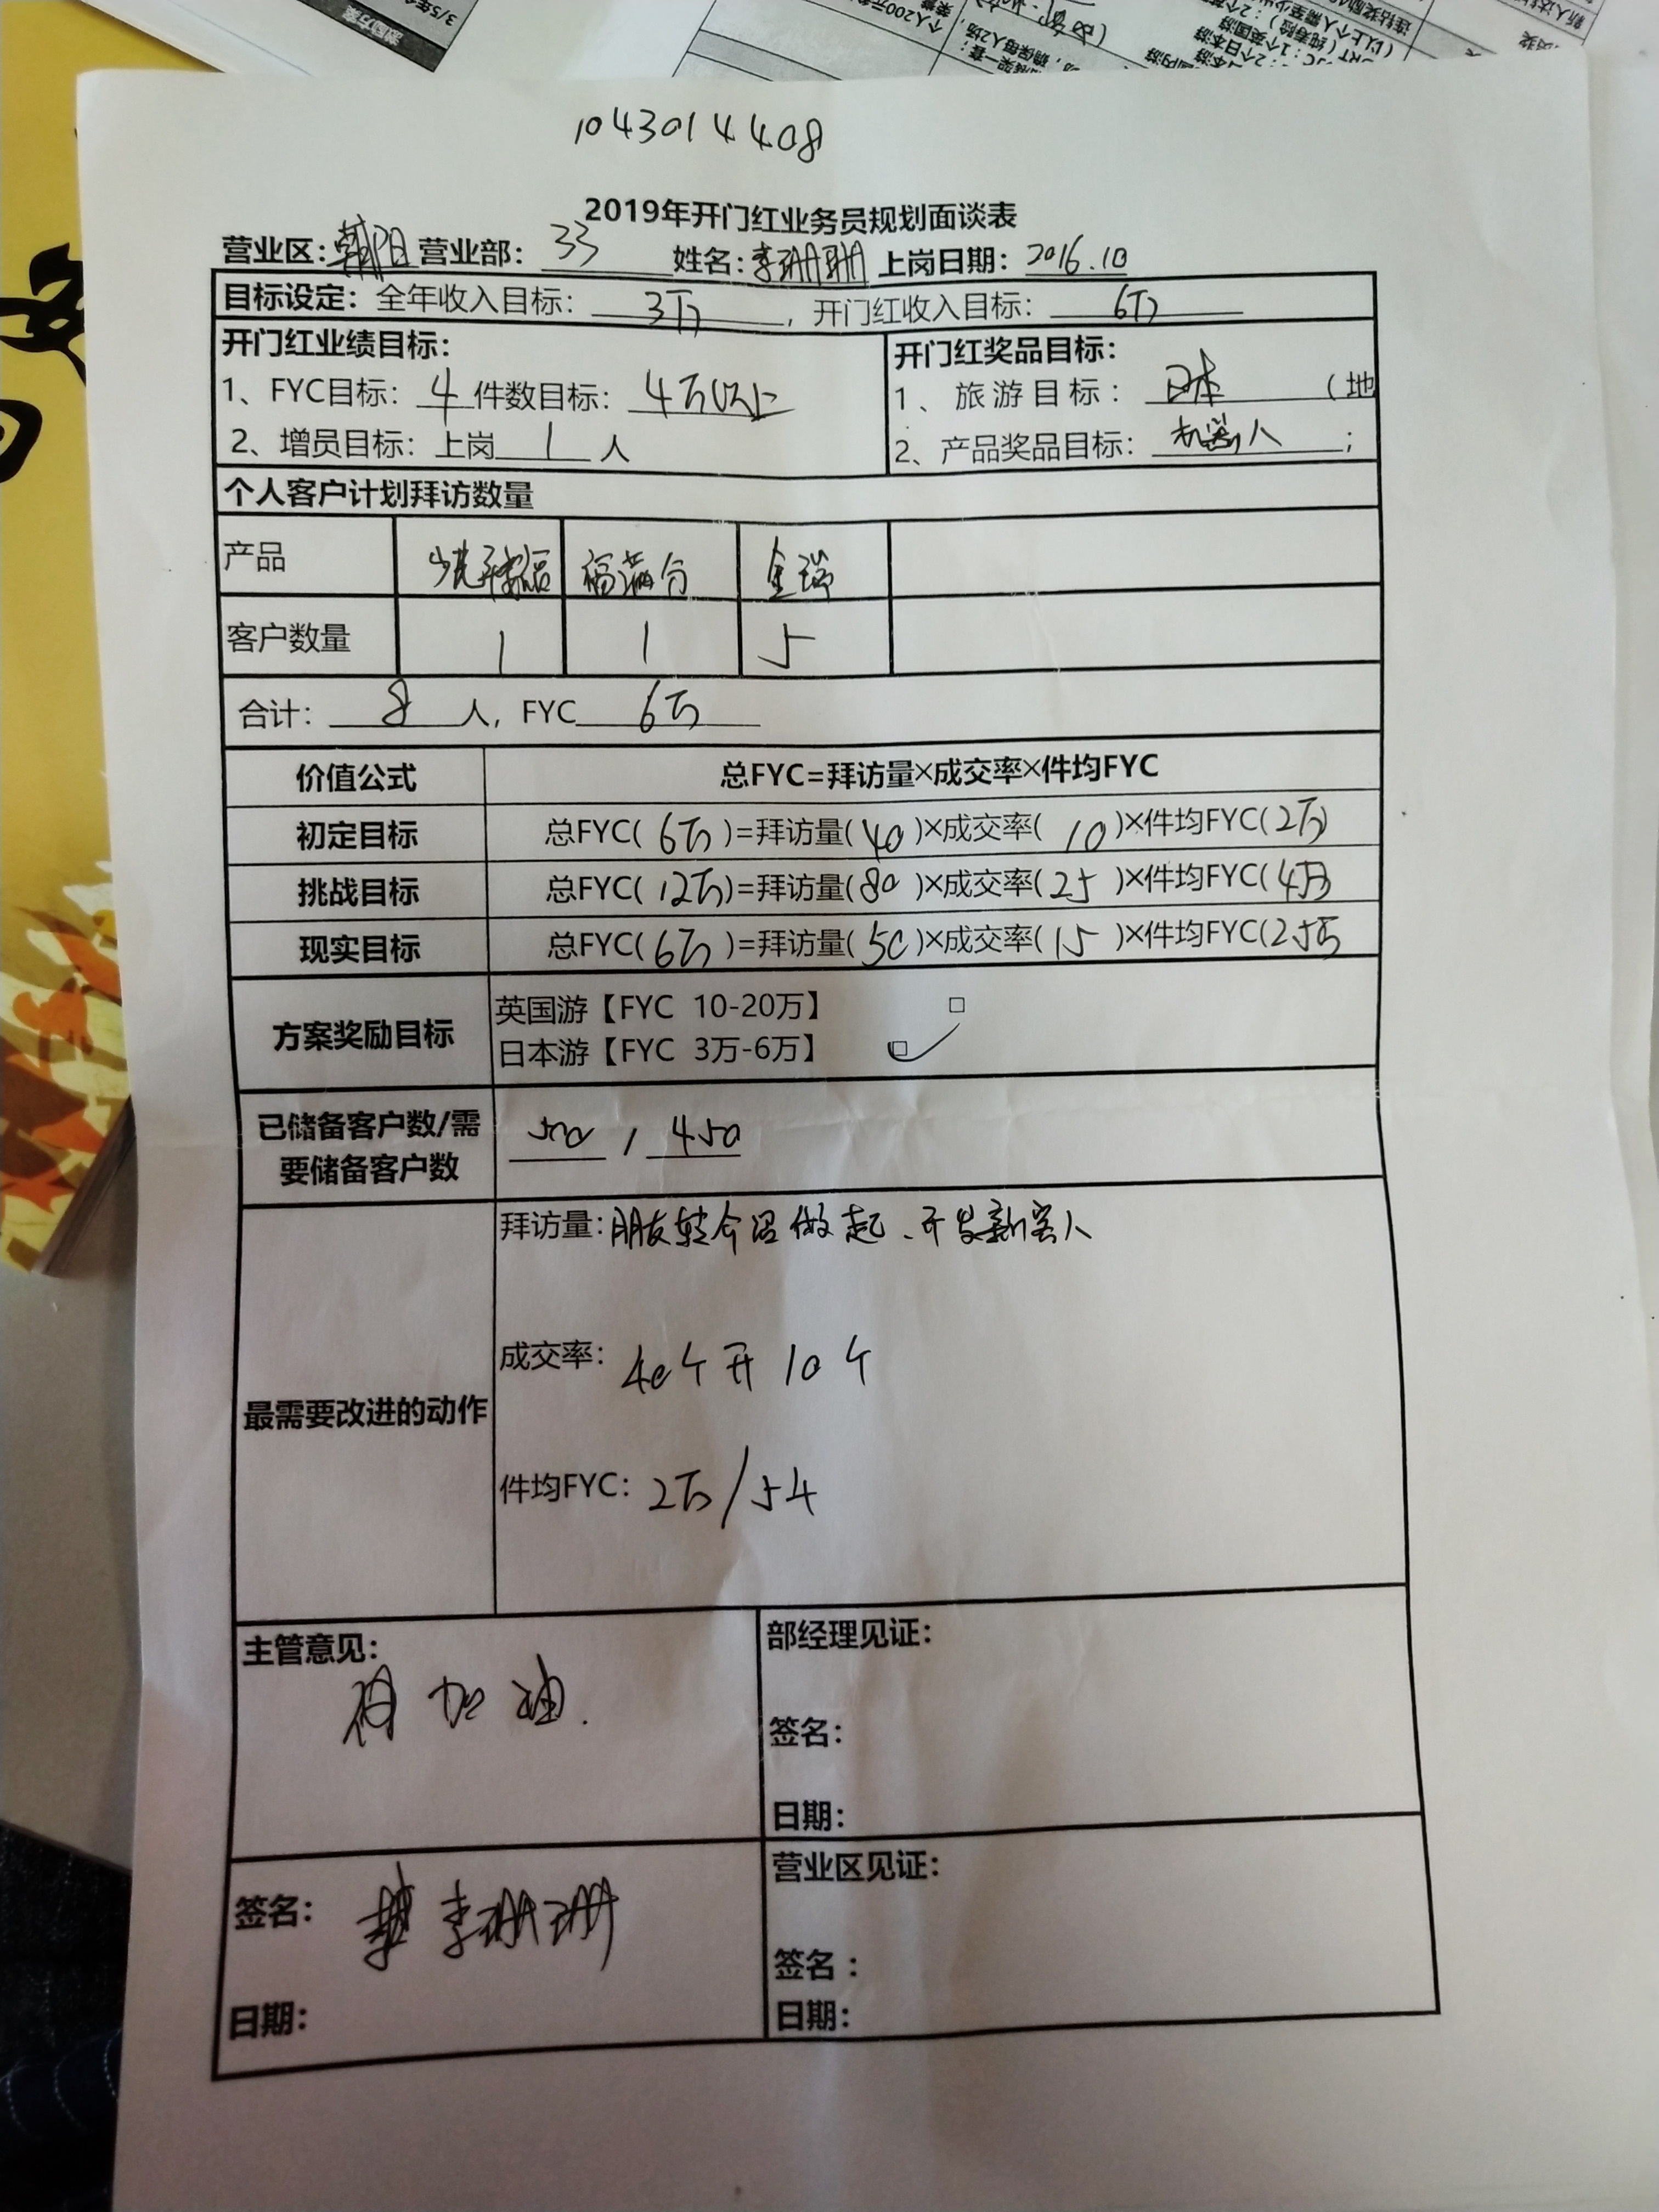 1043014408
2019年开门红业务员规划面谈表
营业区：朝阳 营业部：33 姓名：李珊珊 上岗日期：2016.10
目标设定：全年收入目标：3万，开门红收入目标：6万
开门红业绩目标：
1、FYC目标：4 件数目标：4万以上
2、增员目标：上岗 1 人
开门红奖品目标：
1、旅游目标：日本（地
2、产品奖品目标：机器人；
个人客户计划拜访数量
产品 福满分 金瑞
客户数量 1 1 5
合计：8人，FYC 6万
价值公式 总FYC=拜访量×成交率×件均FYC
初定目标 总FYC(6万)=拜访量(40)×成交率(10)×件均FYC(2万)
挑战目标 总FYC(12万)=拜访量(80)×成交率(25)×件均FYC(4万)
现实目标 总FYC(6万)=拜访量(50)×成交率(15)×件均FYC(2.5万
方案奖励目标
英国游【FYC 10-20万】 □
日本游【FYC 3万-6万】 □
已储备客户数/需
要储备客户数
500 / 450
最需要改进的动作
拜访量：朋友转介绍做起、开发新客人
成交率：40个开10个
件均FYC：2万/54
主管意见：
加油.
签名：李珊珊
日期：
部经理见证：
签名：
日期：
营业区见证：
签名：
日期：
3/5年
个人200万
确保每人2场,